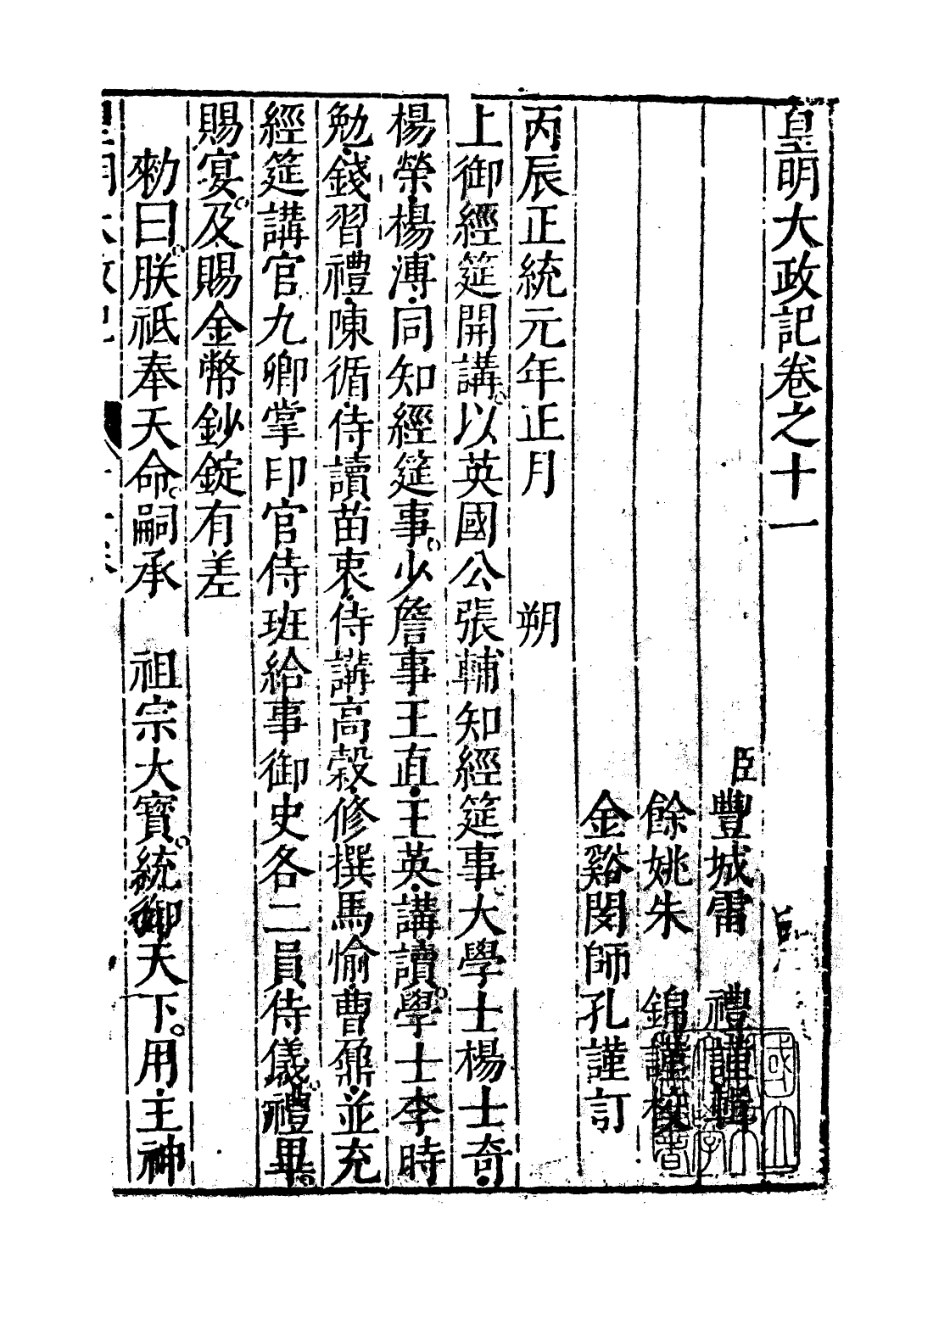 皇明大政記卷之十一
臣豐城雷　禮謹輯
餘姚朱　錦謹校
金谿閔師孔謹訂
丙辰正統元年正月　　朔
上御經筵開講。以英國公張輔知經筵事。大學士楊士奇．
楊榮．楊溥．同知經筵事。少詹事王直．王英．講讀。學士李時
勉．錢習禮．陳循．侍讀苗衷．侍講高穀．修撰馬愉．曹鼐．並充
經筵講官九卿掌印官侍班給事御史各二員侍儀。禮畢。
賜宴。及賜金幣鈔錠有差
勑曰。朕祇奉天命。嗣承　祖宗大寶。統御天下。用主神